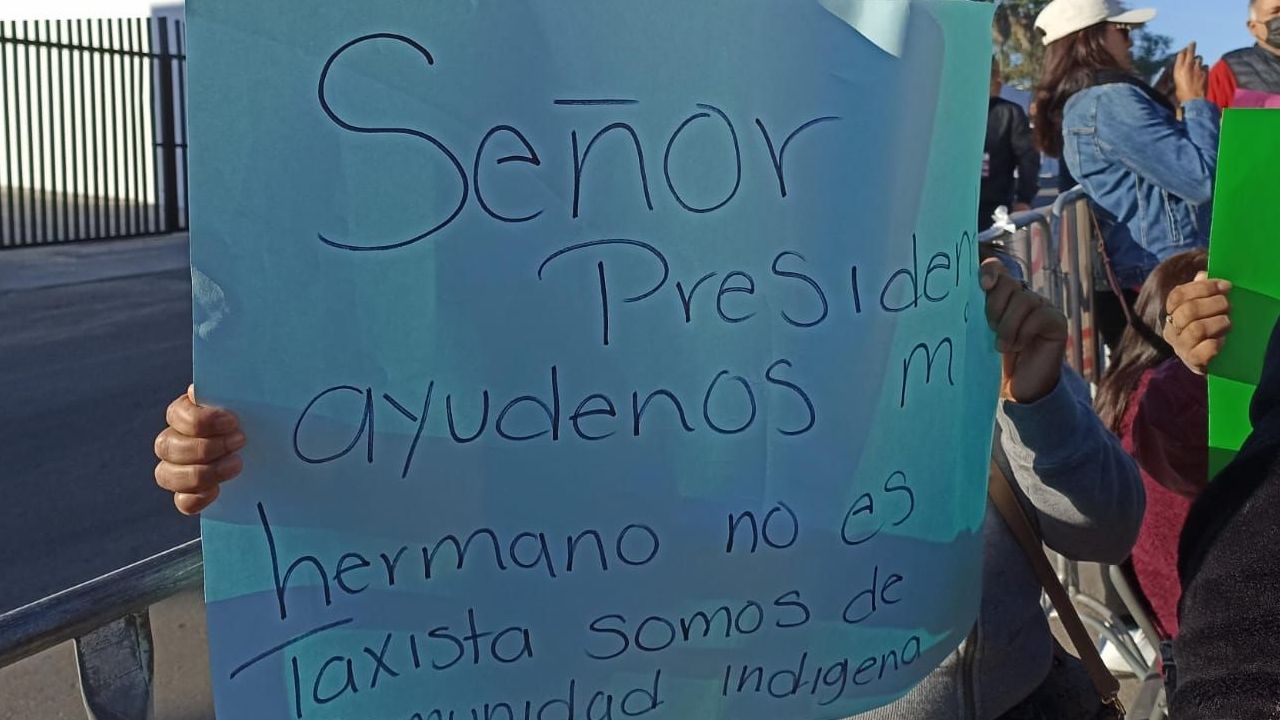 Señor
Presiden
ayudenos m
hermano no es
Taxista somos de
munidad indigena